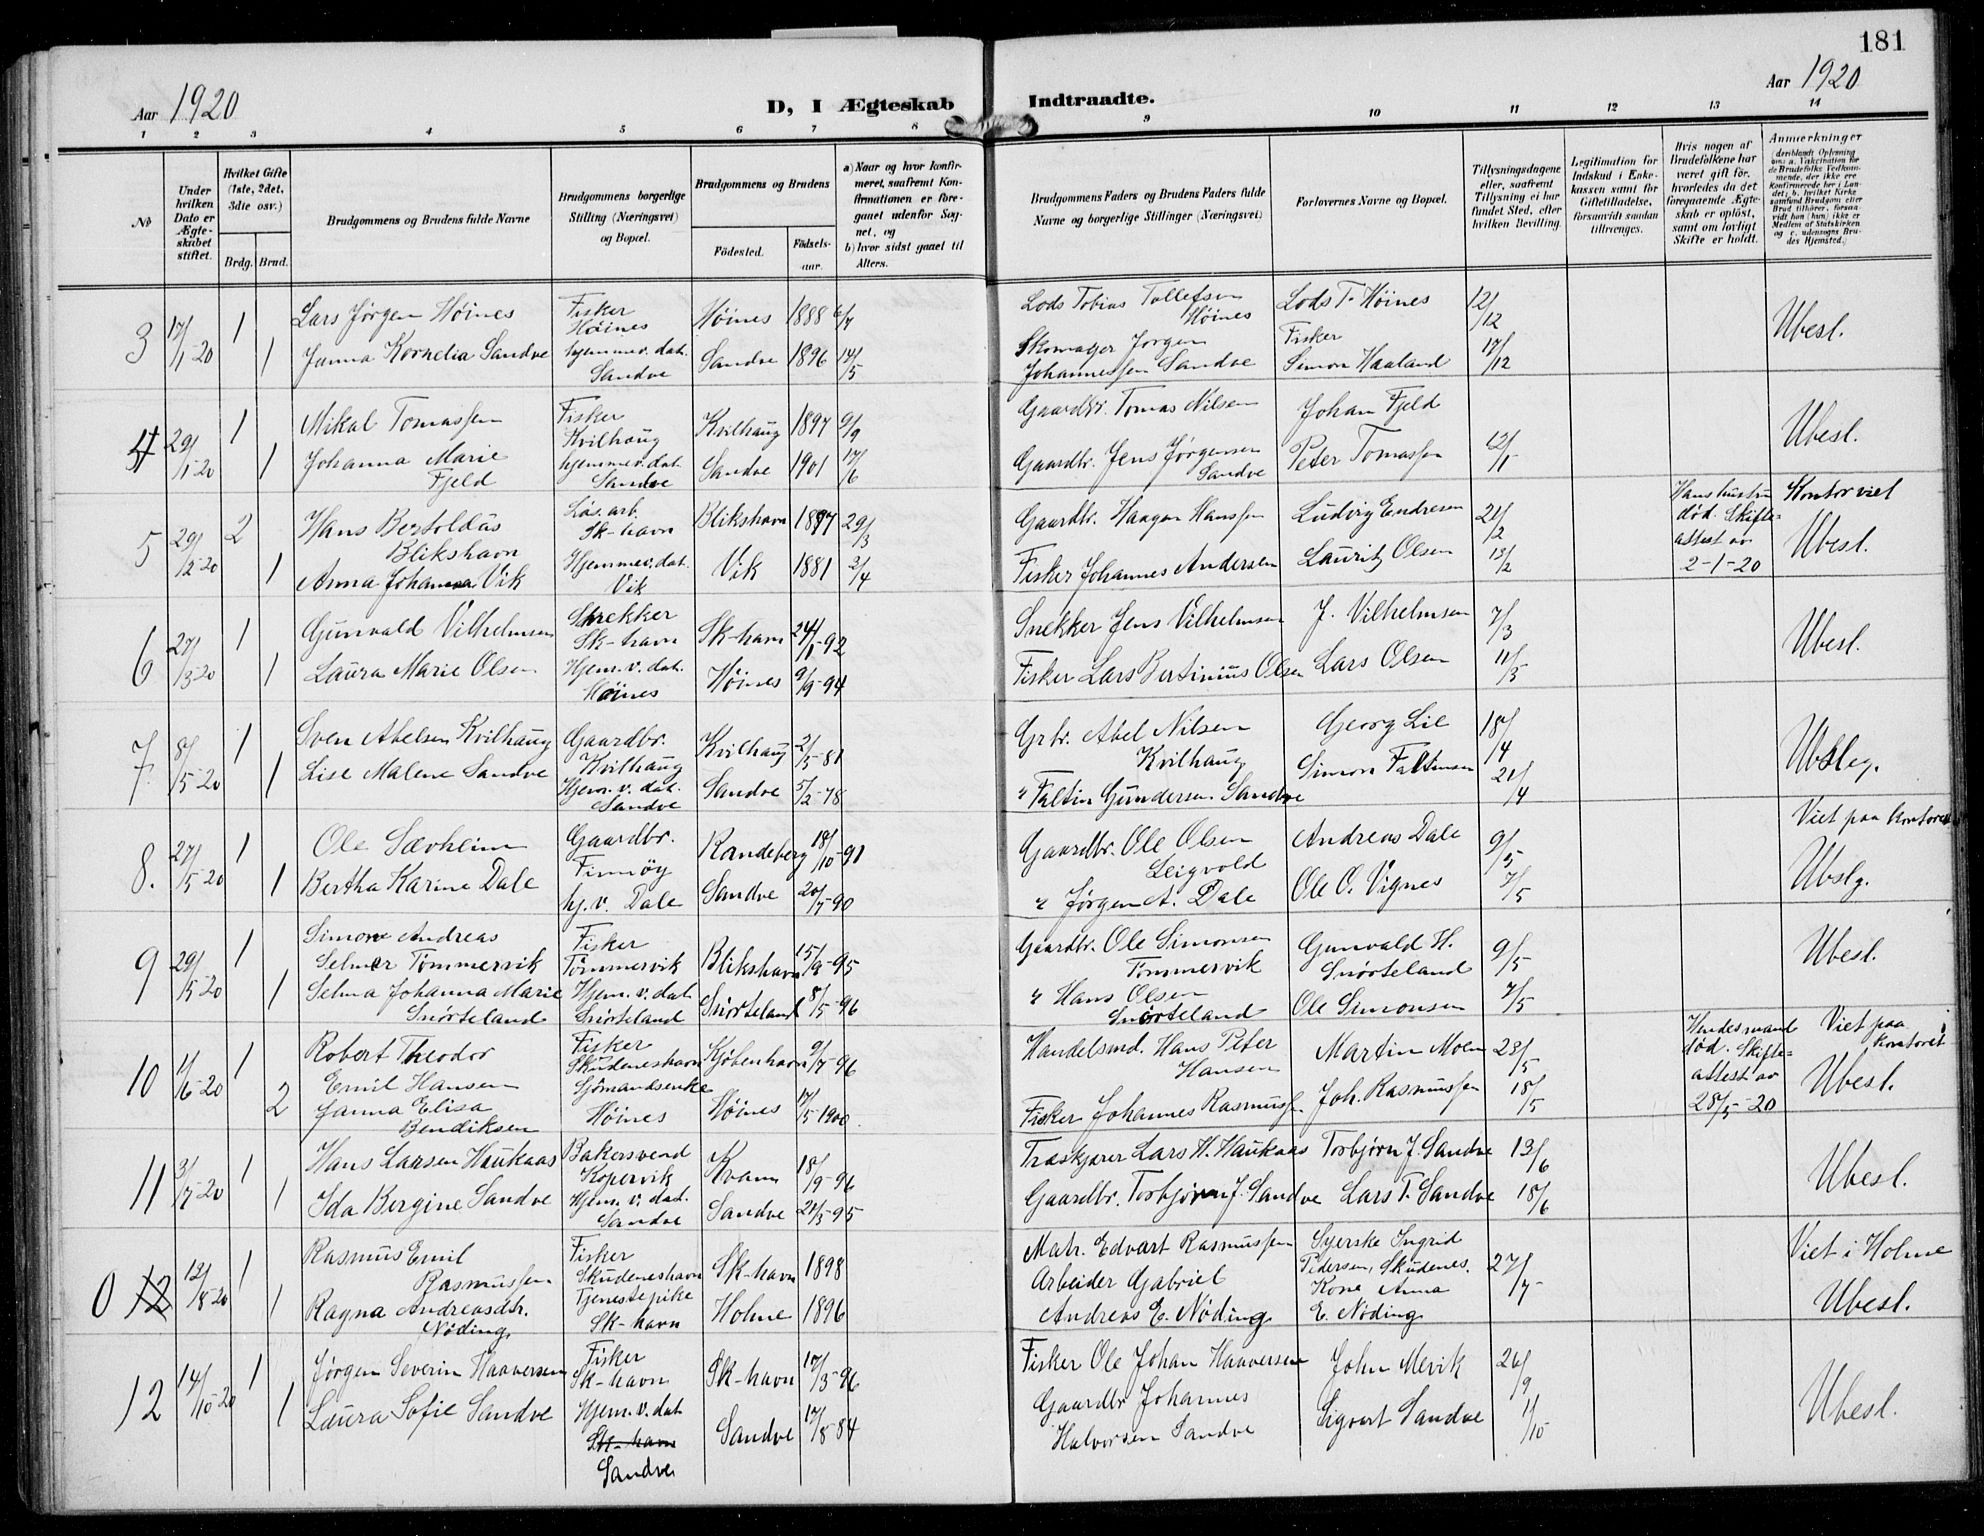 181
Aar 1920
D, I Ægteskab Indtraadte.
Aar 1920
1 2 3 4 5 6 7 8 9 10 11 12 13 14
No
Under hvilken Dato er Ægteskabet stiftet.
Hvilket Gifte (1ste, 2det, 3die osv.)
Brdg. Brud.
Brudgommens og Brudens fulde Navne
Brudgommens borgerlige Stilling (Næringsvei) og Bopæl.
Brudgommens og Brudens
Födested.
Födselsaar.
a) Naar og hvor konfirmeret, saafremt Konfirmationen er foregaaet udenför Sognet, og
b) hvor sidst gaaet til Alters.
Brudgommens Faders og Brudens Faders fulde Navne og borgerlige Stillinger (Næringsvei)
Forlovernes Navne og Bopæl.
Tillysningsdagene eller, saafremt Tillysning ei har fundet Sted, efter hvilken Bevilling.
Legitimation for Indskud i Enkekassen samt for Giftetilladelse, forsaavidt saadan tiltrænges.
Hvis nogen af Brudefolkene har været gift för, hvorledes da det foregaaende Ægteskab er oplöst, samt om lovligt Skifte er holdt.
Anmærkninger
(deriblandt Oplysning om: a. Vakcination for de Brudefolks Vedkommende, der ikke ere Konfirmerede her i Landet; b. hvilket Kirkesamfund Brudgom eller Brud tilhörer, forsaavidt han (hun) ikke er Medlem af Statskirken og c. udensogns Brudes Hjemsted.)
3 17/1-20 1 Lars Jørgen Høines Fisker Høines Høines 1888 6/7 Lods Tobias Tollefsen Høines Lods T. Høines 12/12 Ubesl.
1 Janna Kornelia Sandve hjemmev. dat. Sandve Sandve 1896 14/5 Skomager Jørgen Johannessen Sandve Fisker Simon Haaland 17/12
4 29/1-20 1 Mikal Tomassen Fisker Kvilhaug Kvilhaug 1897 9/9 Gaardbr. Tomas Nilsen Johan Fjeld Ubesl.
1 Johanna Marie Fjeld hjemmev. dat. Sandve Sandve 1901 17/6 Gaardbr. Jens Jørgensen Sandve Peter Tomassen 12/1
5 29/2-20 2 Hans Bertoldus Blikshavn Løs. arb. Sk-havn Blikshavn 1887 29/3 Gaardbr. Haagan Hanssen Ludvig Endresen 21/2 Hans hustru død. Skifteattest av 2-1-20 Kontorviet Ubesl.
1 Anna Johansa Vik Hjemmev. dat. Vik Vik 1881 2/4 Fisker Johannes Andersen Lauritz Olsen 13/2
6 27/3-20 1 Gunvald Vilhelmsen Snekker Sk-havn Sk-havn 24/1-92 Snekker Jens Vilhelmsen J. Vilhelmsen 7/3 Ubesl.
1 Laura Marie Olsen Hjem. v. dat. Høines Høines 9/9-94 Fisker Lars Bertinius Olsen Lars Olsen 11/3
7 8/5-20 1 Sven Abelsen Kvilhaug Gaardbr. Kvilhaug Kvilhaug 2/5-81 Grbr. Abel Nilsen Kvilhaug Georg Lie 18/4 Ubsleg.
1 Lise Malene Sandve Hjem. v. dat. Sandve Sandve 5/2-78 " Faltin Gundersen Sandve Simon Faltinsen 21/4
8. 27/5-20 1 Ole Sævheim Gaardbr. Finnöy Randeberg 18/10-91 Gaardbr. Ole Olsen Leigvold Andreas Dale 9/5 Viet paa kontoret Ubslg.
1 Bertha Karine Dale hj. v. Dale Sandve 20/7-90 " Jørgen A. Dale Ole O. Vignes 7/5
9 29/5-20 1 Simon Andreas Selmer Tømmervik Fisker Tømmervik Blikshavn 15/9-95 Gaardbr. Ole Simonsen Tømmervik Gunvald H. Snørteland 9/5 Ubesl.
1 Selma Johanna Marie Snørteland Hjem. v. dat Snørteland Snørteland 8/5-96 " Hans Olsen Snørteland Ole Simonsen 7/5
10 1/6-20 1 Robert Theodor Emil Hansen Fisker Skudeneshavn Kjöbenhavn 9/7-96 Handelsmd. Hans Peter Hansen Martin Moen 23/5 Hendes mand død. Skifteattest av 28/5-20 Viet paa kontoret Ubesl.
2 Janna Elisa Bendiksen Sjömandsenke Høines Høines 17/5 1900 Fisker Johannes Rasmuss. Joh. Rasmussen 18/5
11 3/7-20 1 Hans Larsen Haukaas Bakersvend Kopervik Kvam 18/9-96 Træskjærer Lars H. Haukaas Torbjørn J. Sandve 13/6 Ubesl.
1 Ida Bergine Sandve Hjem. v. dat. Sandve Sandve 21/3-95 Gaardbr. Torbjørn J. Sandve Lars T. Sandve 18/6
0 12 12/8-20 1 Rasmus Emil Rasmussen Fisker Skudeneshavn Sk-havn 1898 Matr. Edvart Rasmussen Syerske Ingrid Pedersen, Skudenes. 27/7 Viet i Holme Ubesl.
1 Ragna Andreasdtr. Nøding Tjenestepike Sk-havn Holme 1896 Arbeider Gabriel Andreas E. Nøding Kone Anna E. Nøding
12 14/10-20 1 Jørgen Severin Haaversen Fisker Sk-havn Sk-havn 17/3-96 Fisker Ole Johan Haaversen John Mevik 26/9 Ubesl.
1 Laura Sofie Sandve Hjem. v. dat Sk-havn Sandve Sandve 17/8-84 Gaardbr Johannes Halvorsen Sandve Sigvart Sandve 1/10